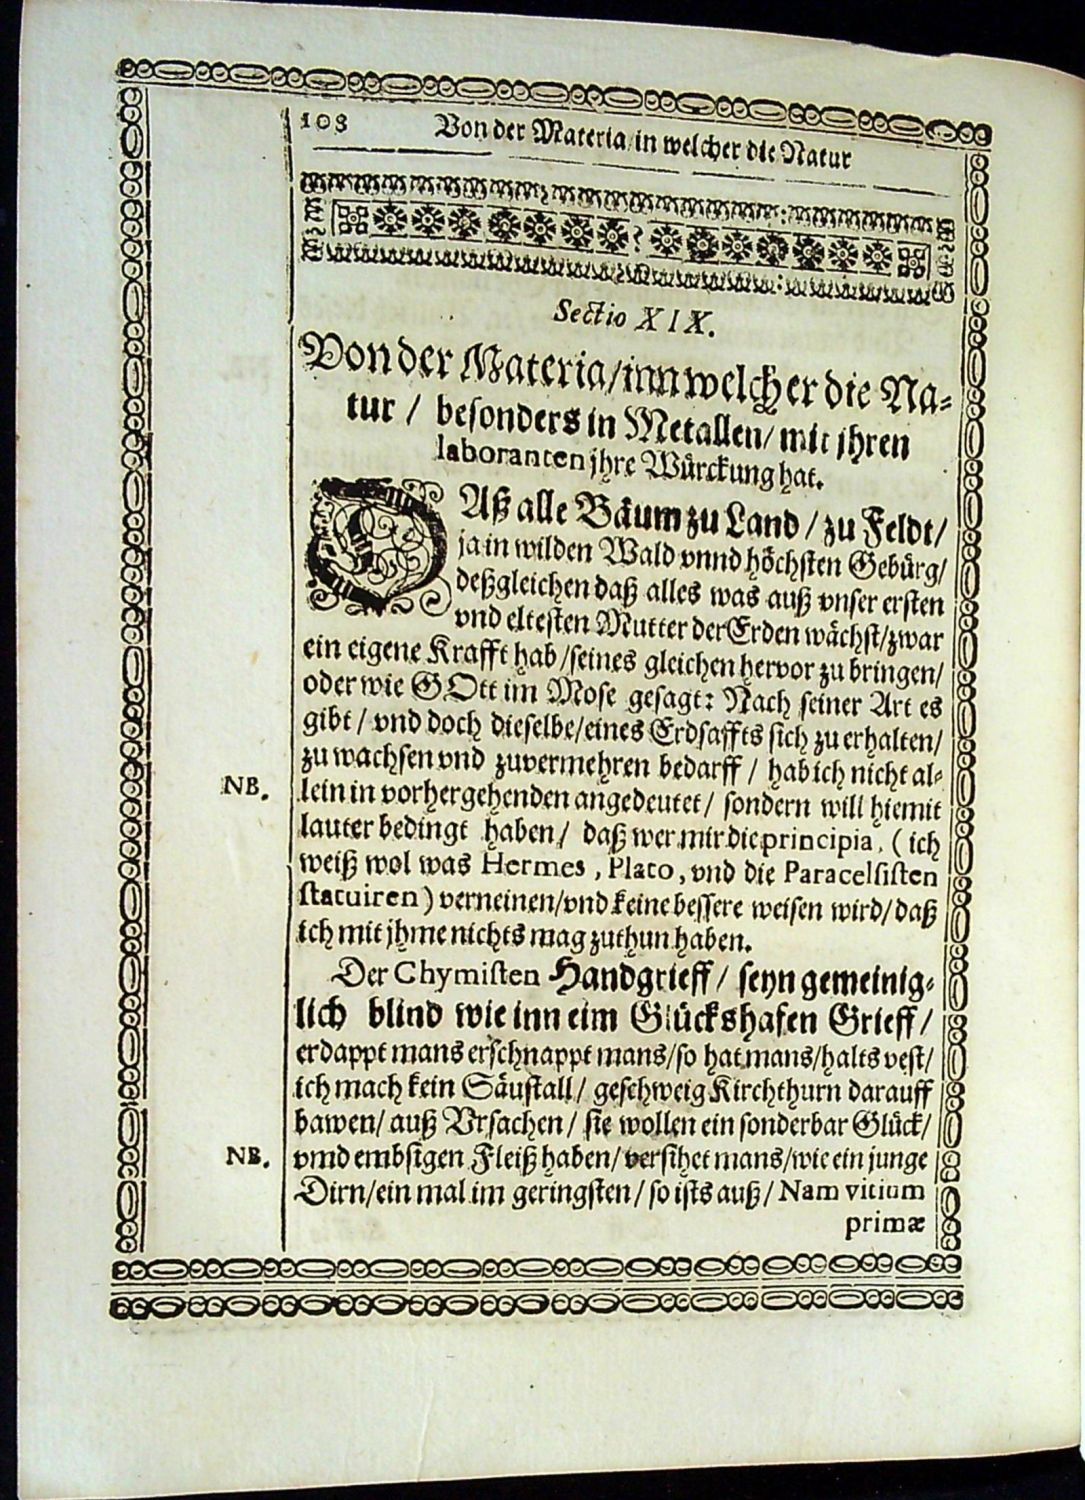 108 Von der Materia/in welcher die Natur
Sectio XIX.
Von der Materia/inn welcher die Na-
tur / besonders in Metallen/ mit jhren
laboranten jhre Würckung hat.
DAß alle Bäum zu Land / zu Feldt/
ja in wilden Wald vnnd höchsten Gebürg/
deßgleichen daß alles was auß vnser ersten
vnd eltesten Mutter der Erden wächst/zwar
ein eigene Krafft hab /seines gleichen hervor zu bringen/
oder wie GOtt im Mose gesagt: Nach seiner Art es
gibt / vnd doch dieselbe/eines Erdsaffts sich zu erhalten/
zu wachsen vnd zuvermehren bedarff / hab ich nicht al-
NB. lein in vorhergehenden angedeutet/ sondern will hiemit
lauter bedingt haben/ daß wer mir die principia, ( ich
weiß wol was Hermes, Plato, vnd die Paracelsisten
statuiren) verneinen/vnd keine bessere weisen wird/ daß
ich mit jhme nichts mag zuthun haben.
Der Chymisten Handgrieff/ seyn gemeinig-
lich blind wie inn eim Glückshafen Grieff/
erdappt mans erschnappt mans/so hat mans/halts vest/
ich mach kein Säustall/ geschweig Kirchthurn darauff
bawen/ auß Vrsachen/ sie wollen ein sonderbar Glück/
NB. vnnd embsigen Fleiß haben/ versihet mans/wie ein junge
Dirn/ein mal im geringsten/ so ists auß/ Nam vitium
primæ